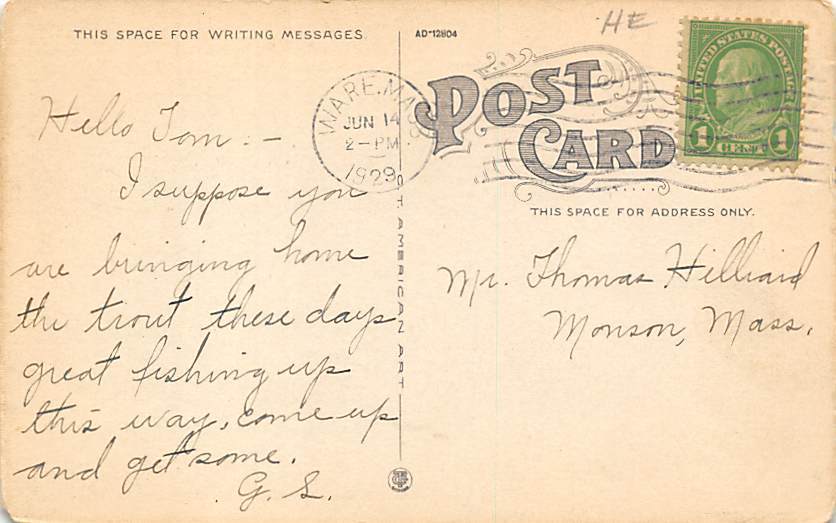 THIS SPACE FOR WRITING MESSAGES.
AD-12804
HE
POST CARD
WARE, MASS
JUN 14
2-PM
1929
UNITED STATES POSTAGE
1 CENT 1
Hello Tom:-
I suppose you
are bringing home
the trout these days
great fishing up
this way, come up
and get some.
G. S.
C.T. AMERICAN ART
THIS SPACE FOR ADDRESS ONLY.
Mr. Thomas Hilliard
Monson, Mass.